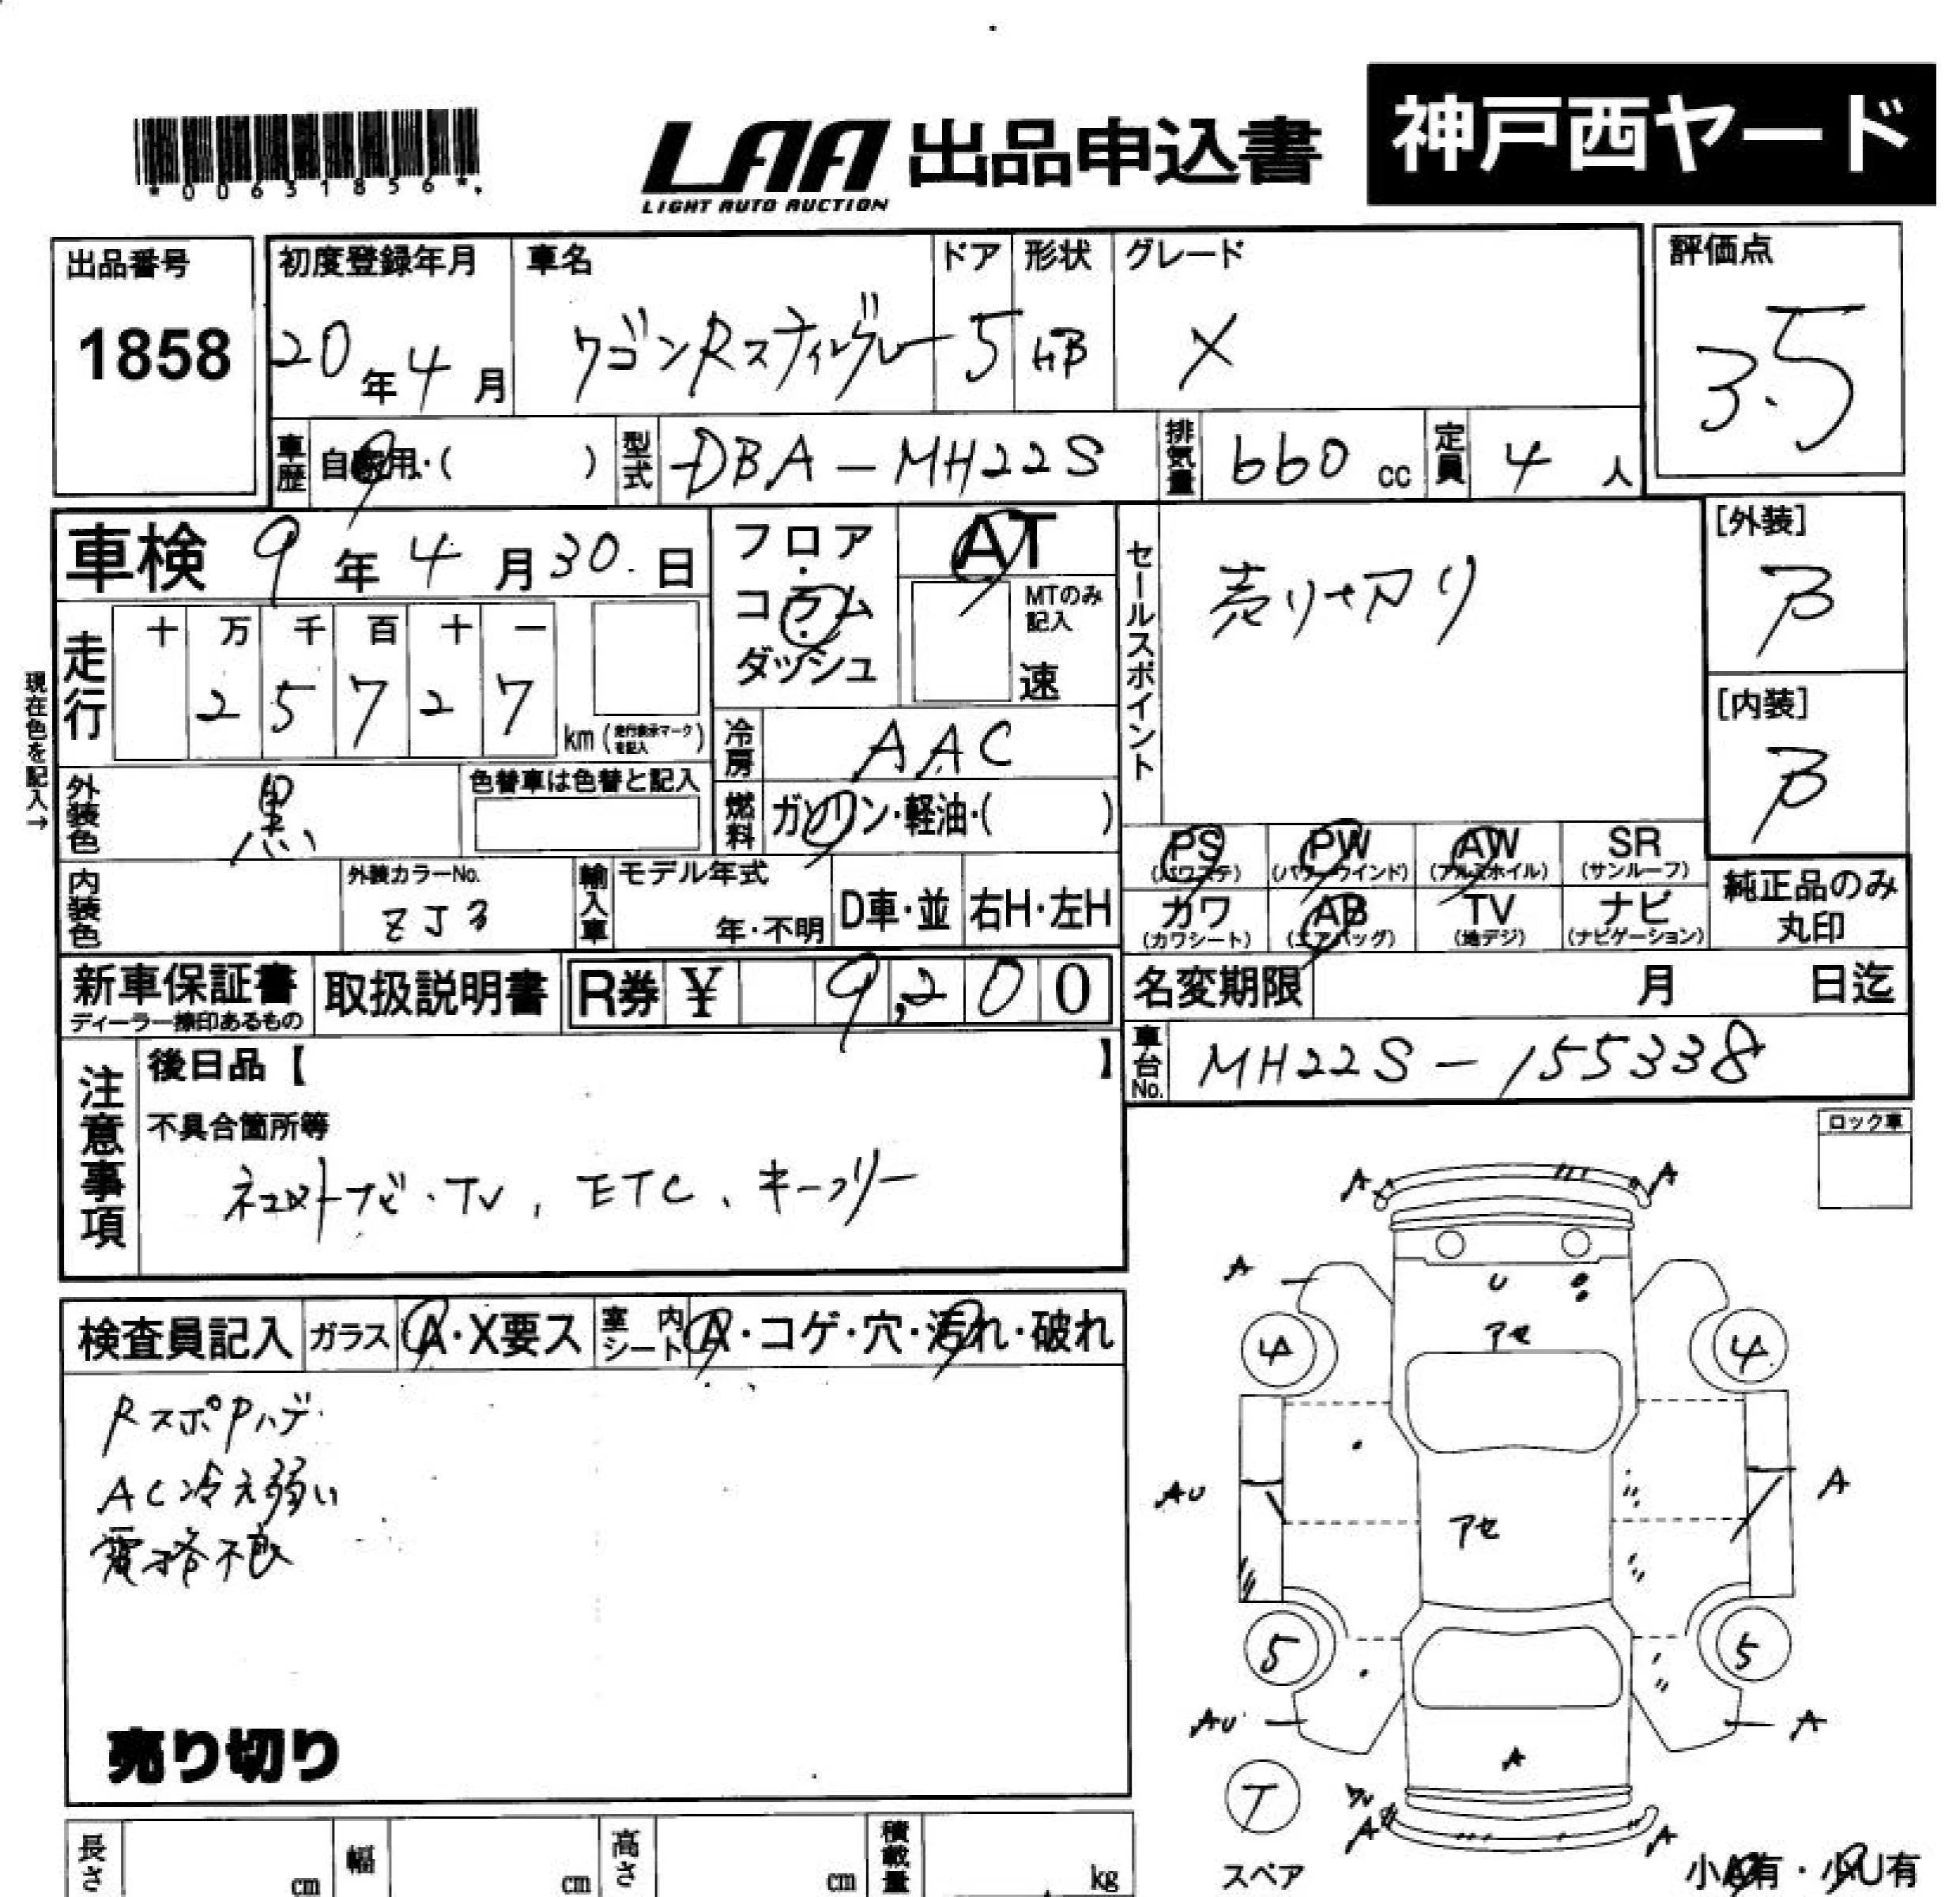 *00631856*
LAA 出品申込書 神戸西ヤード
LIGHT AUTO AUCTION
出品番号 初度登録年月 車名 ドア 形状 グレード 評価点
1858 20年4月 ワゴンRスティングレー 5 HB X 3.5
車歴 自家用・( ) 型式 DBA-MH22S 排気量 660 cc 定員 4 人
車検 9年4月30日 フロア・コラム・ダッシュ AT
MTのみ記入 速
セールスポイント 売り切り
[外装] B
[内装] B
現在色を記入→
走行 十 万 千 百 十 一
2 5 7 2 7 km (走行表示マークを記入)
冷房 AAC
外装色 黒 色替車は色替と記入
燃料 ガソリン・軽油・( )
PS (パワステ) PW (パワーウインド) AW (アルミホイル) SR (サンルーフ)
カワ (カワシート) AB (エアバッグ) TV (地デジ) ナビ (ナビゲーション)
純正品のみ丸印
内装色 外装カラーNo. ZJ3 輸入車 モデル年式 年・不明 D車・並 右H・左H
新車保証書 ディーラー捺印あるもの 取扱説明書 R券 ¥ 9,200
名変期限 月 日迄
車台No. MH22S-155338
注意事項 後日品【 】
不具合箇所等
ナビ・TV、ETC、キーフリー
ロック車
検査員記入 ガラス A・X要ス 室内シート A・コゲ・穴・汚れ・破れ
RスポPハゲ
AC冷え弱い
電格不良
売り切り
A A
A
U
アセ
4 4
AU A
アセ
5 5
AU A
A
T
A A
スペア 小A有・小U有
長さ cm 幅 cm 高さ cm 積載量 kg